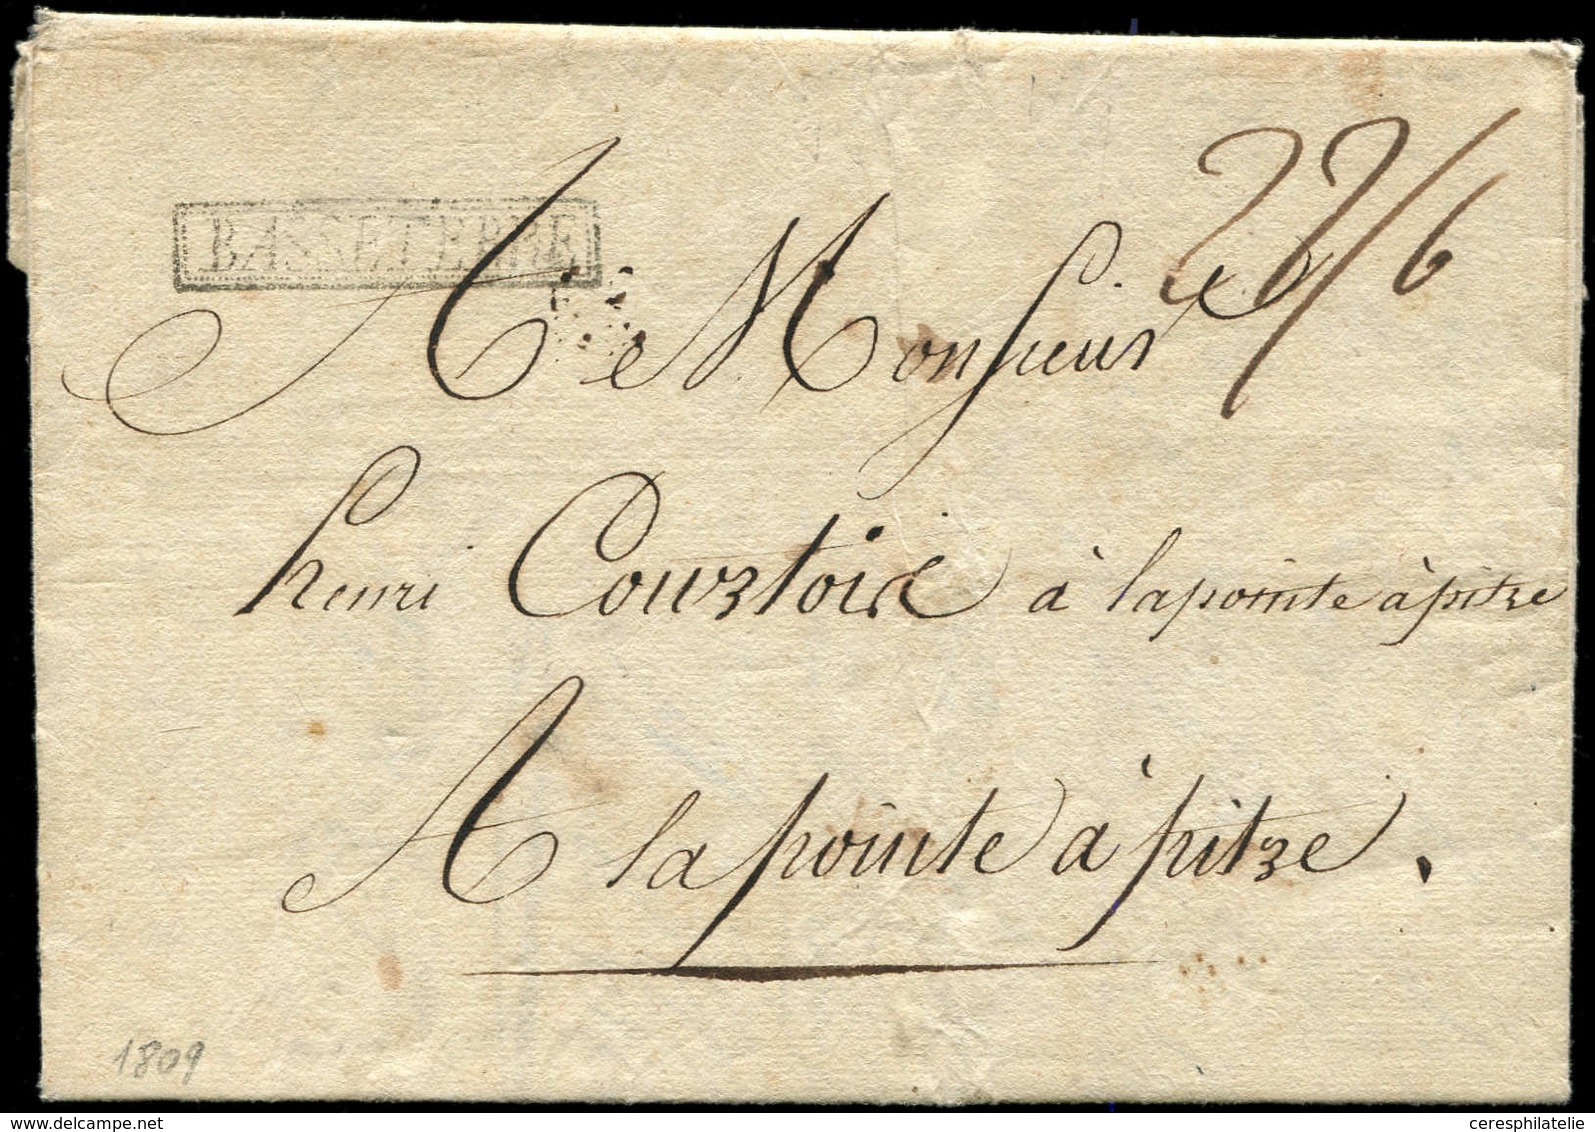 BASSETERRE
22/6
A Monsieur
henri Courtois à lapointe àpitre
A lapointe àpitre.
1809
delcampe.net
ceresphilatelie